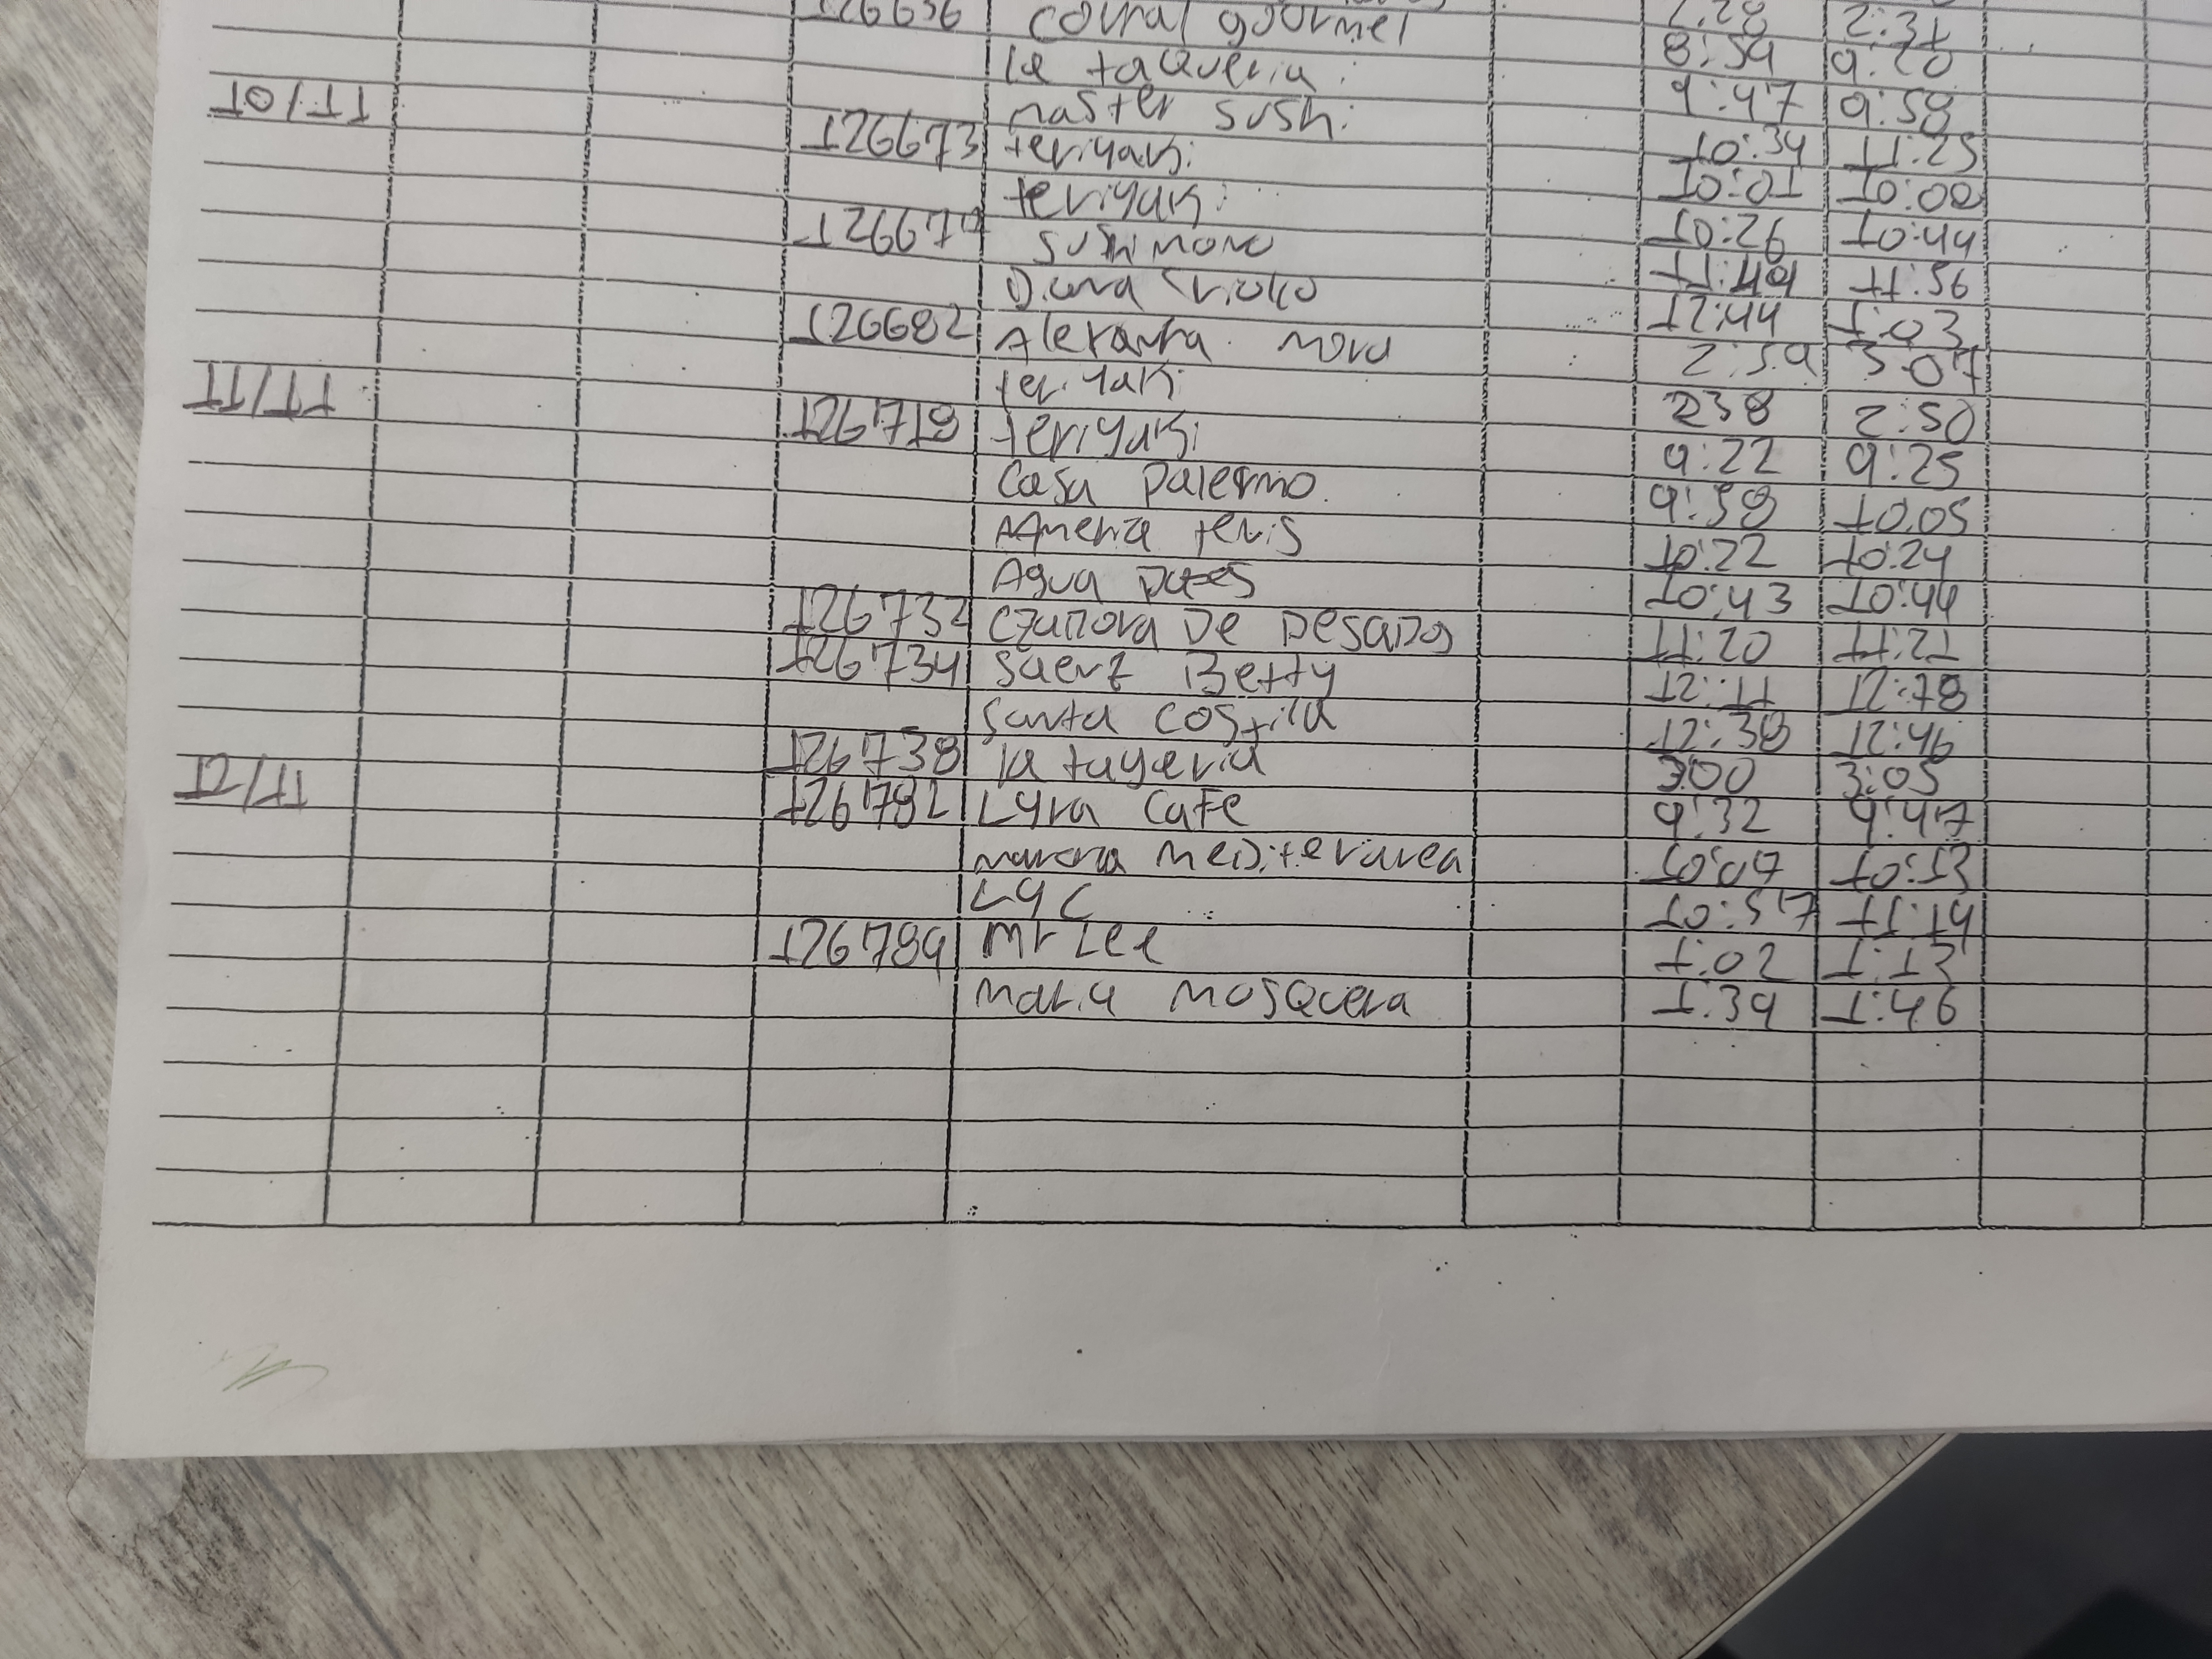 126656 corral gourmet 2:28 2:31
la taqueria 8:59 9:20
10/11 master sushi 9:47 9:58
126673 teriyaki 10:34 11:25
teriyaki 10:01 10:08
sushi moro 10:26 10:44
Diana 11:49 11:56
126682 Alexandra mora 12:44 1:03
teriyaki 2:59 3:07
11/11 126718 teriyaki 238 2:50
Casa palermo 9:22 9:25
9:58 10:05
Agua 10:22 10:24
10:43 10:44
126732 DE PESADOS 11:20 11:21
126734 saenz Betty 12:11 12:18
santa costilla 12:38 12:46
126738 la taqeria 3:00 3:05
12/11 126782 Lyra CaFe 9:32 9:47
Mediteranea 10:07 10:13
LYC 10:57 11:19
126789 Mr Lee 1:02 1:13
Maria Mosquera 1:39 1:46